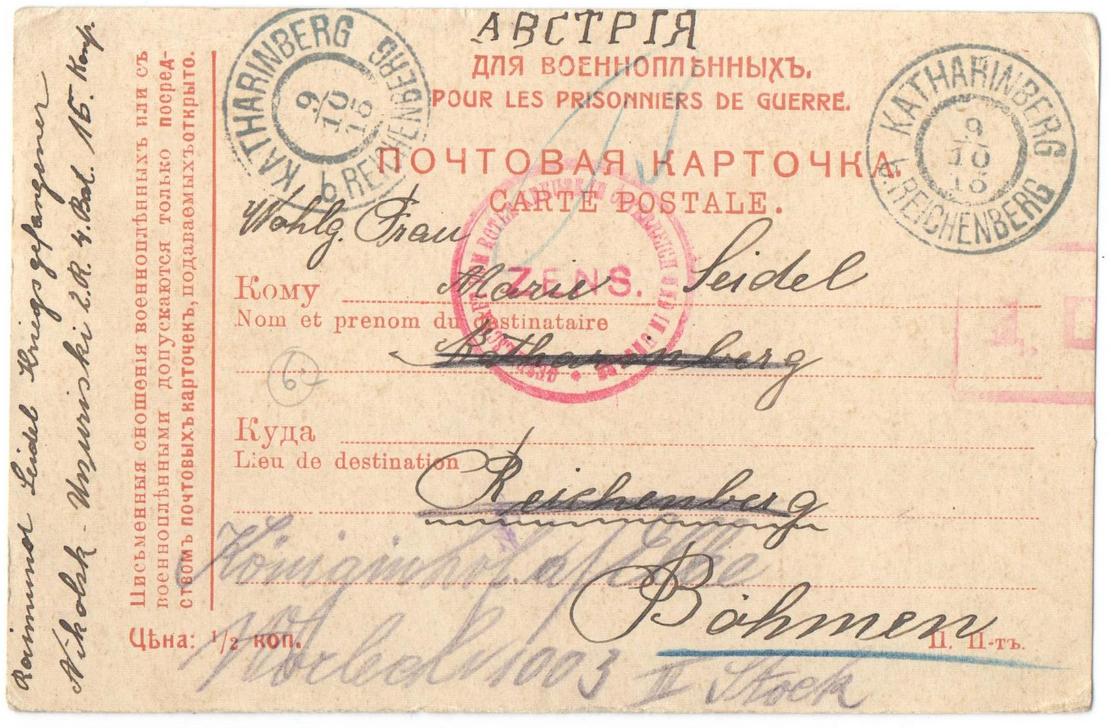 АВСТРІЯ
ДЛЯ ВОЕННОПЛѢННЫХЪ.
POUR LES PRISONNIERS DE GUERRE.
ПОЧТОВАЯ КАРТОЧКА.
CARTE POSTALE.
KATHARINBERG
b. REICHENBERG
9
10
15
KATHARINBERG
b. REICHENBERG
9
10
15
Wohlg. Frau
Marie Seidel
ZENS.
Кому
Nom et prenom du destinataire
Katharinenberg
Куда
Lieu de destination
Reichenberg
Königinhof a/Elbe
Böhmen
1003 II Stock
Цѣна: 1/2 коп.
П. П-тъ.
Письменныя сношенія военноплѣнныхъ или съ
военноплѣнными допускаются только посред-
ствомъ почтовыхъ карточекъ, подаваемыхъ открыто.
Raimund Seidel Kriegsgefangener
Nikolsk - Ussuriski 2. R. 4. Bat. 15. Komp.